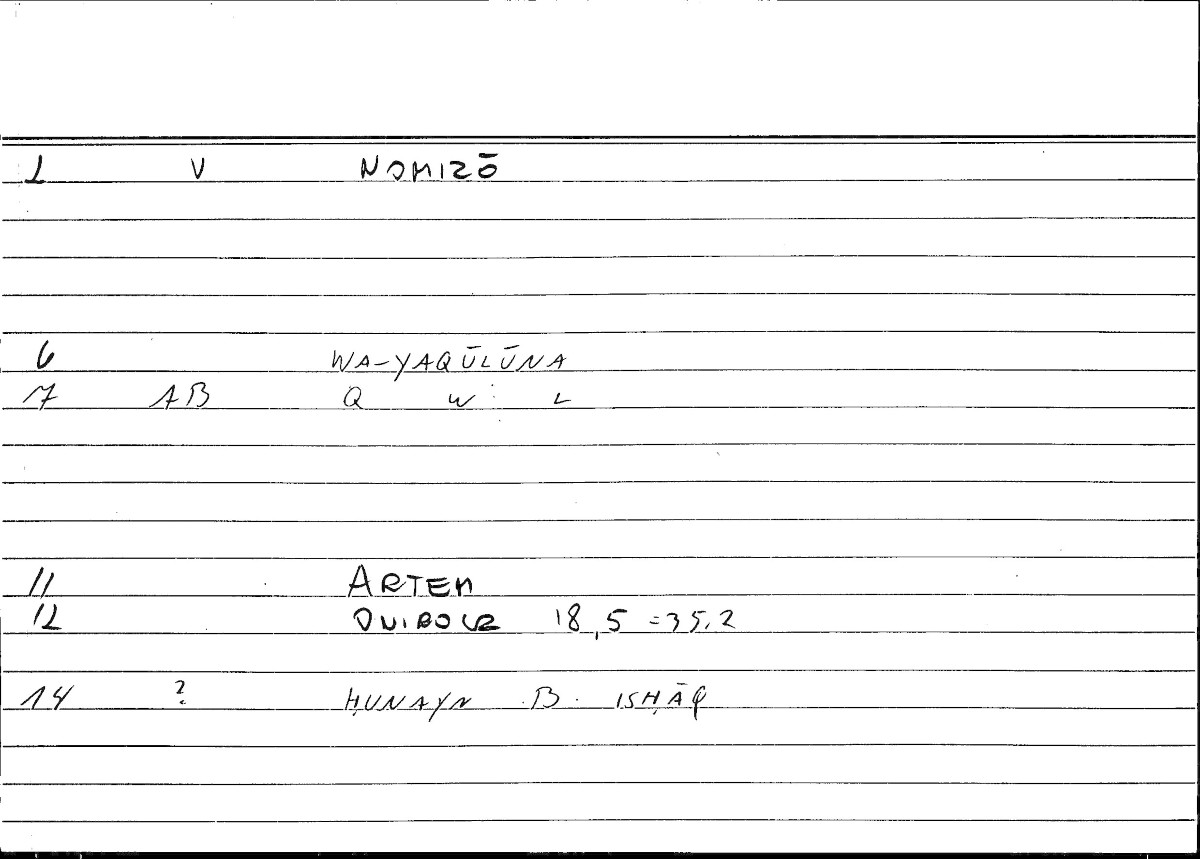 1 V NOMIZŌ
6 WA-YAQŪLŪNA
7 AB Q W L
11 ARTEM
12 ONIROCR 18,5 =35.2
14 ? ḤUNAYN B. ISḤĀQ